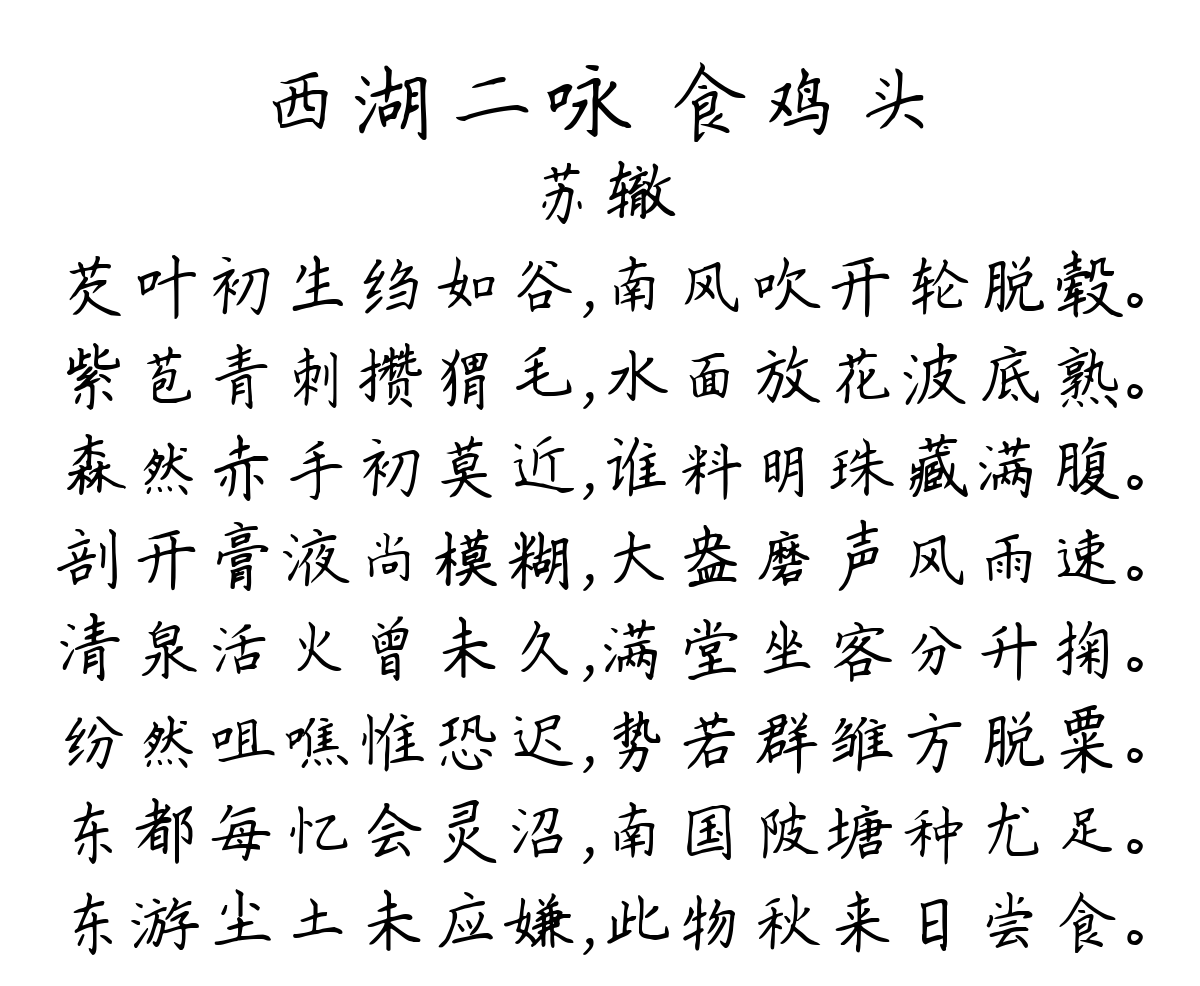 西湖二咏 食鸡头
苏辙
芡叶初生绉如谷,南风吹开轮脱毂。
紫苞青刺攒猬毛,水面放花波底熟。
森然赤手初莫近,谁料明珠藏满腹。
剖开膏液尚模糊,大盎磨声风雨速。
清泉活火曾未久,满堂坐客分升掬。
纷然咀噍惟恐迟,势若群雏方脱粟。
东都每忆会灵沼,南国陂塘种尤足。
东游尘土未应嫌,此物秋来日尝食。